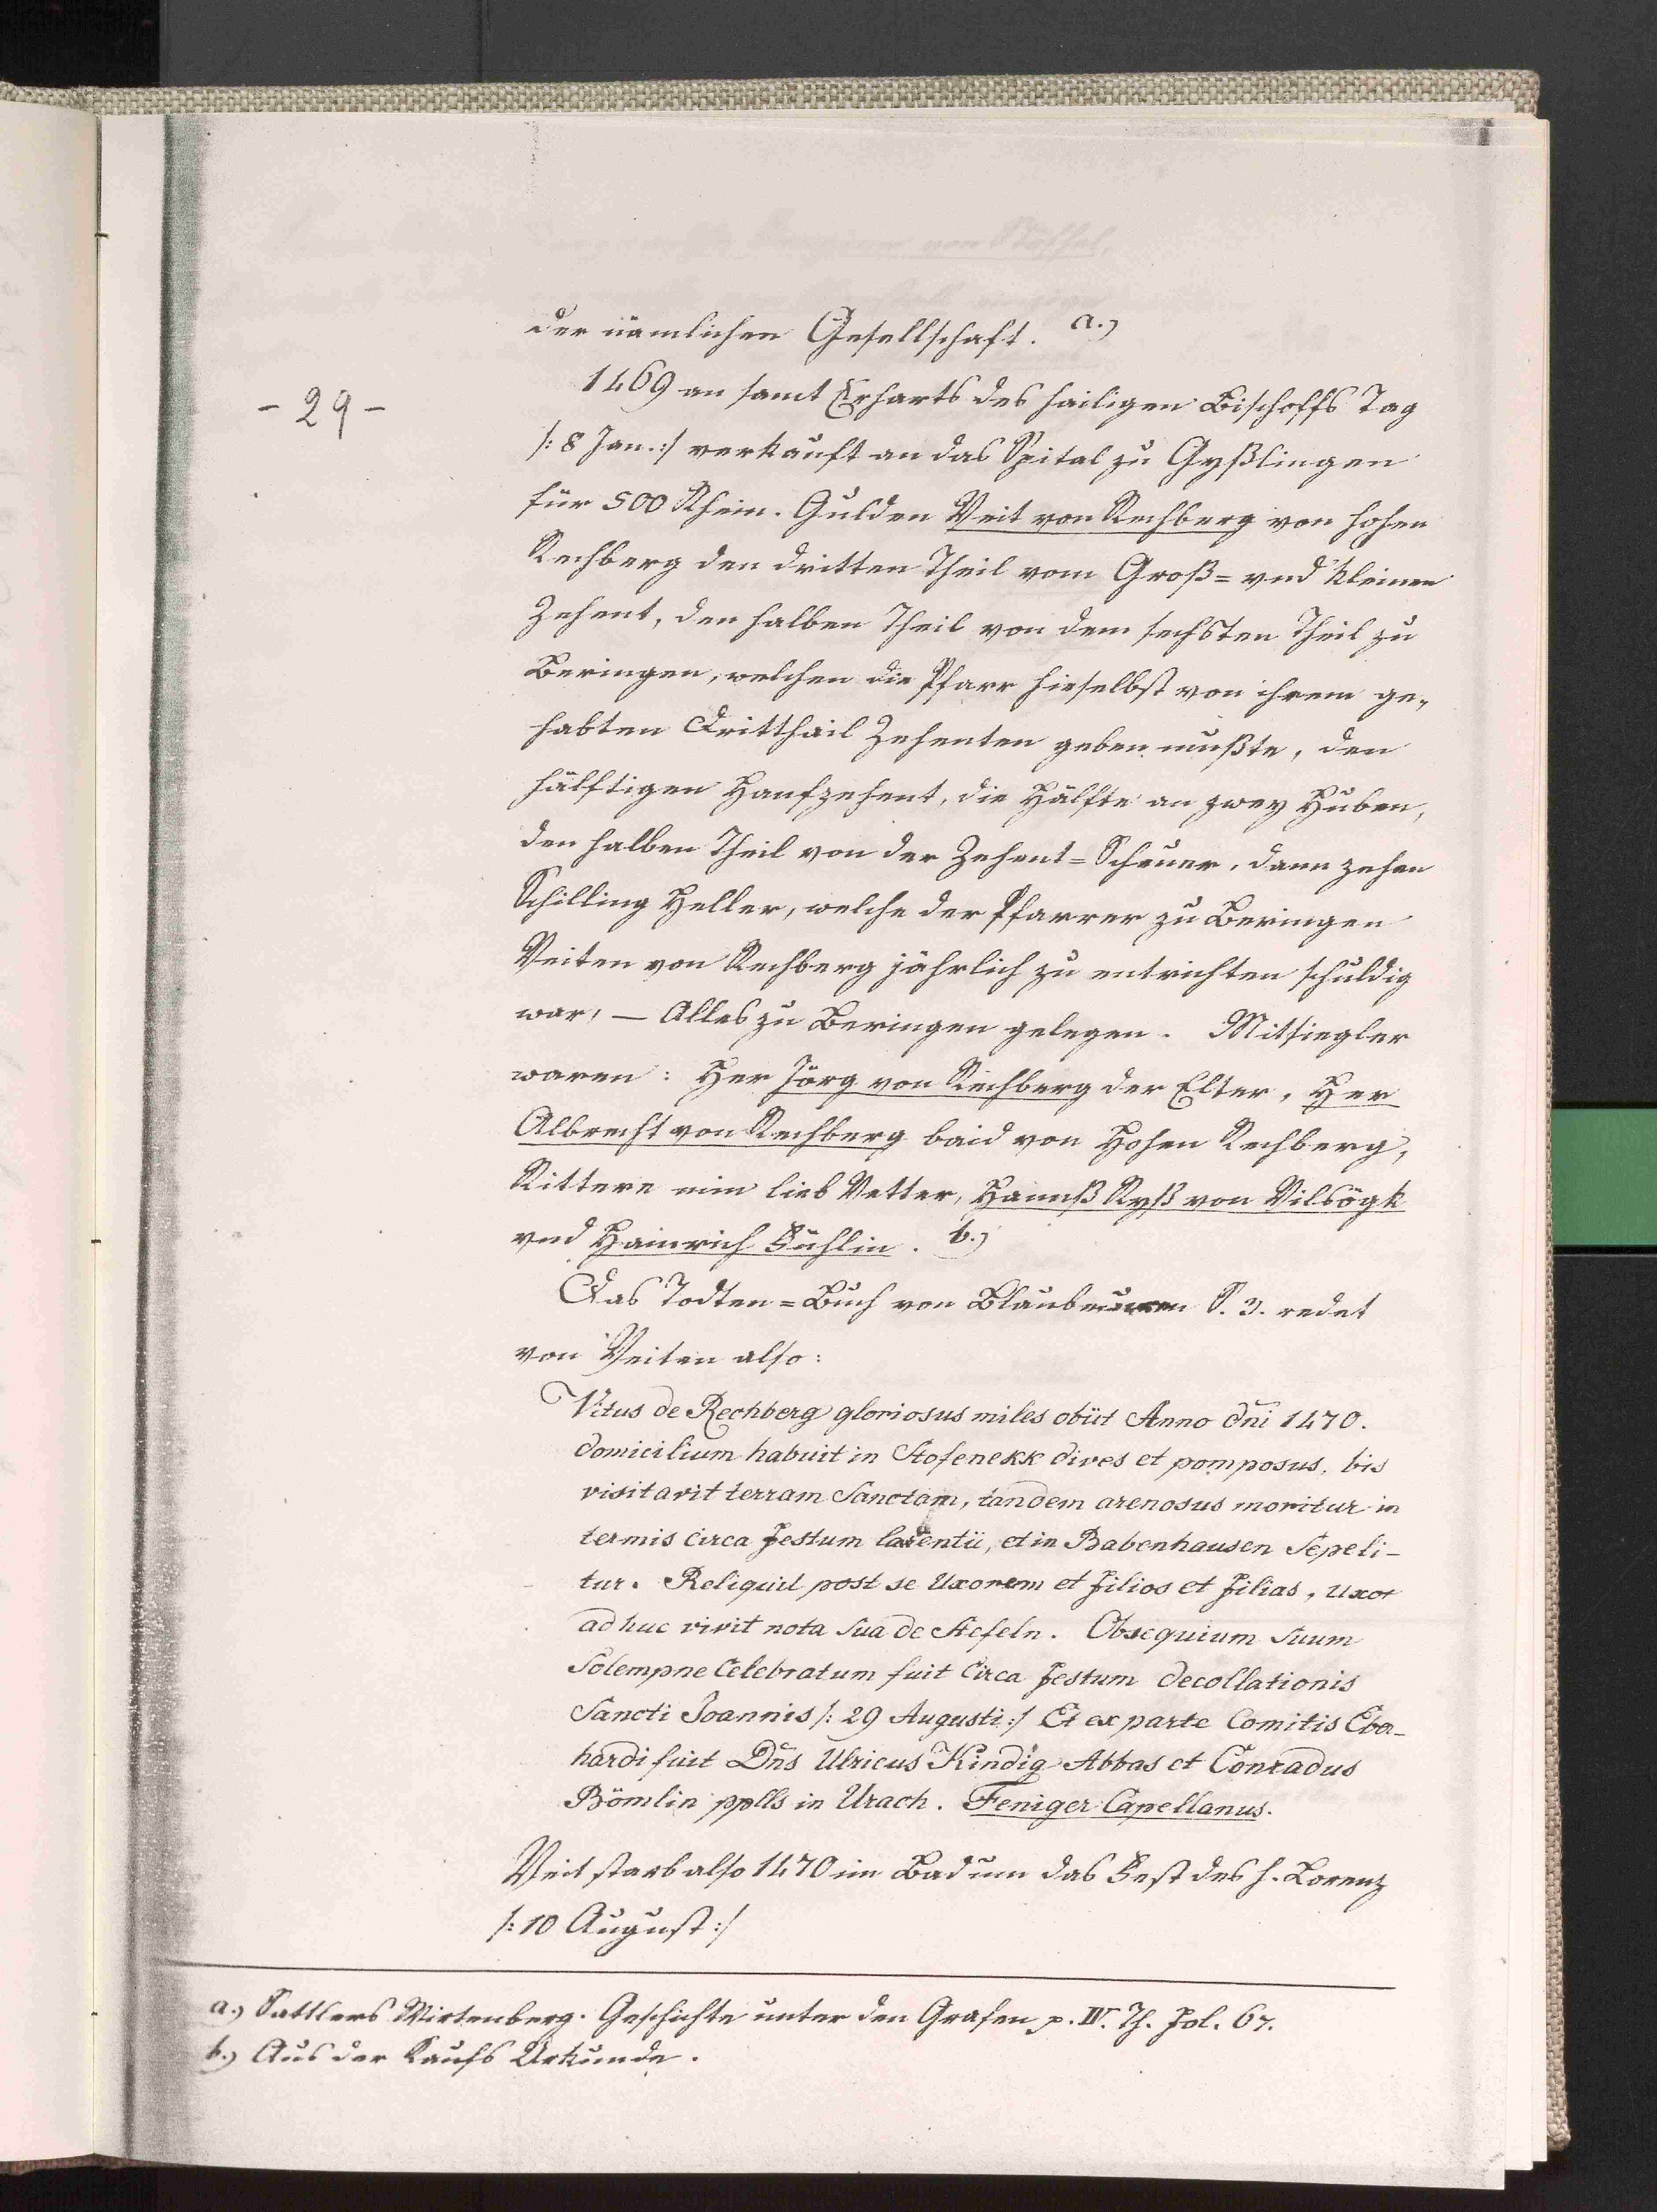 der nämlichen Gesellschaft. a.)
- 29 -
1469 an samt Erharts des hailigen Bischoffs Tag
/: 8 Jan. :/ verkauft an das Spital zu Gyßlingen
für 500 Rhein. Gulden Veit von Rechberg von hohen
Rechberg den dritten Theil vom Groß= vnd kleinen
Zehent, den halben Theil von dem sechsten Theil zu
Beringen, welchen die Pfarr hieselbst von ihrem ge„
habten Dritthail Zehenten geben mußte, den
hälftigen Hanfzehent, die Hälfte an zwey Huben,
den halben Theil von der Zehent=Scheuer, dann zehen
Schilling Heller, welche der Pfarrer zu Beringen
Veiten von Rechberg jährlich zu entrichten schuldig
war, — Alles zu Beringen gelegen. Mitsiegler
waren: Her Jörg von Rechberg der Elter, Her
Albrecht von Rechberg baid von Hohen Rechberg,
Rittere min lieb Vetter, Hannß Ryß von Vilsögk
vnd Hainrich Sühlin. b.)
Das Todten=Buch von Blaubeuren S. 3. redet
von Veiten also:
Vitus de Rechberg gloriosus miles obiit Anno dñi 1470.
domicilium habuit in Stofenekk dives et pomposus, bis
visitavit terram Sanctam, tandem arenosus moritur in
termis circa festum larentii, et in Babenhausen Sepeli-
tur. Reliquit post se Uxorem et filios et filias, uxor
ad huc vivit nota sua de Stefeln. Obsequium suum
Solempne Celebratum fuit Circa festum decollationis
Sancti Joannis /: 29 Augusti :/ Et ex parte Comitis Eber-
hardi fuit Dñs Ulricus Kindig Abbas et Conradus
Bömlin pplls in Urach. Feniger Capellanus.
Veit starb also 1470 im Bad um das Fest des h. Lorenz
/: 10 August :/
a.) Sattlers Wirtenberg. Geschichte unter den Grafen p. IV. Th. Fol. 67.
b.) Aus der Kaufs Urkunde.